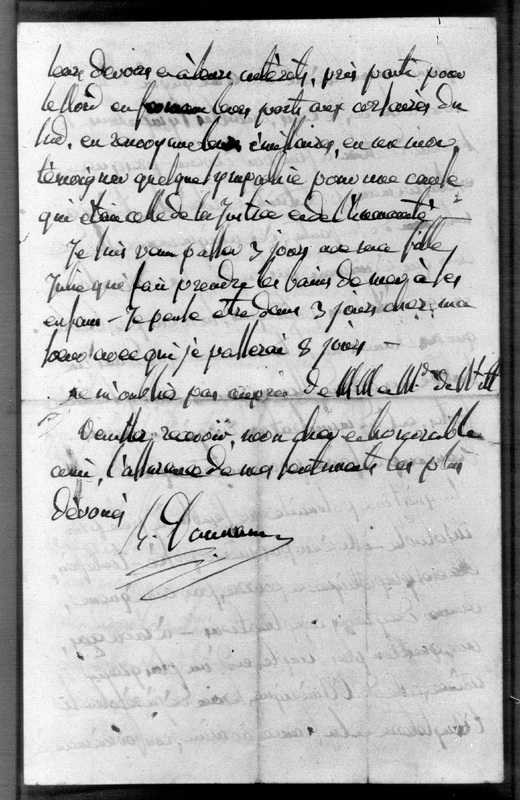 leurs devoirs et à leurs intérêts, pris parti pour
le Nord en fermant leurs ports aux corsaires du
Sud, en renvoyant leurs émissaires, en un mot,
témoigner quelque sympathie pour une cause
qui était celle de la Justice et de l'humanité -
Je suis venu passer 3 jours avec ma fille
Julie qui fait prendre les bains de mer à ses
enfans - Je pense être dans 3 jours chez ma
avec qui je passerai 8 jours -
ne m'oubliez pas auprès de M. et Me de Witt
Veuillez recevoir, mon cher et honorable
ami, l'assurance de mes sentiments les plus
dévoués